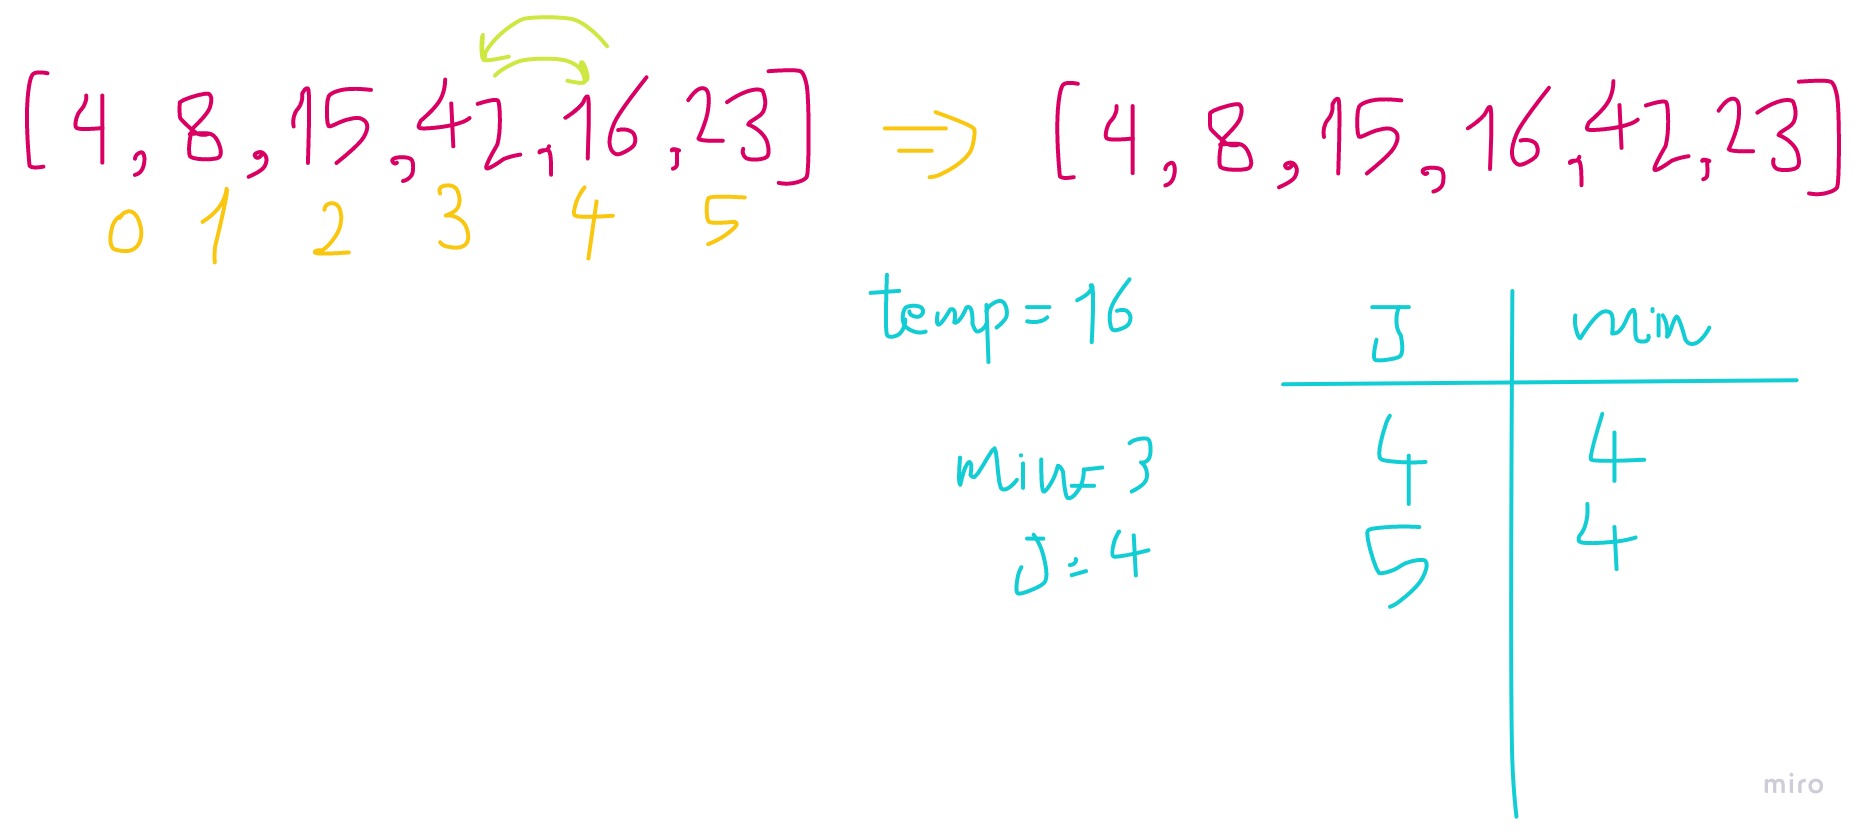 [4, 8, 15, 42, 16, 23] ⇒ [4, 8, 15, 16, 42, 23]
0 1 2 3 4 5
temp = 16
min = 3
J = 4
J min
4 4
5 4
miro